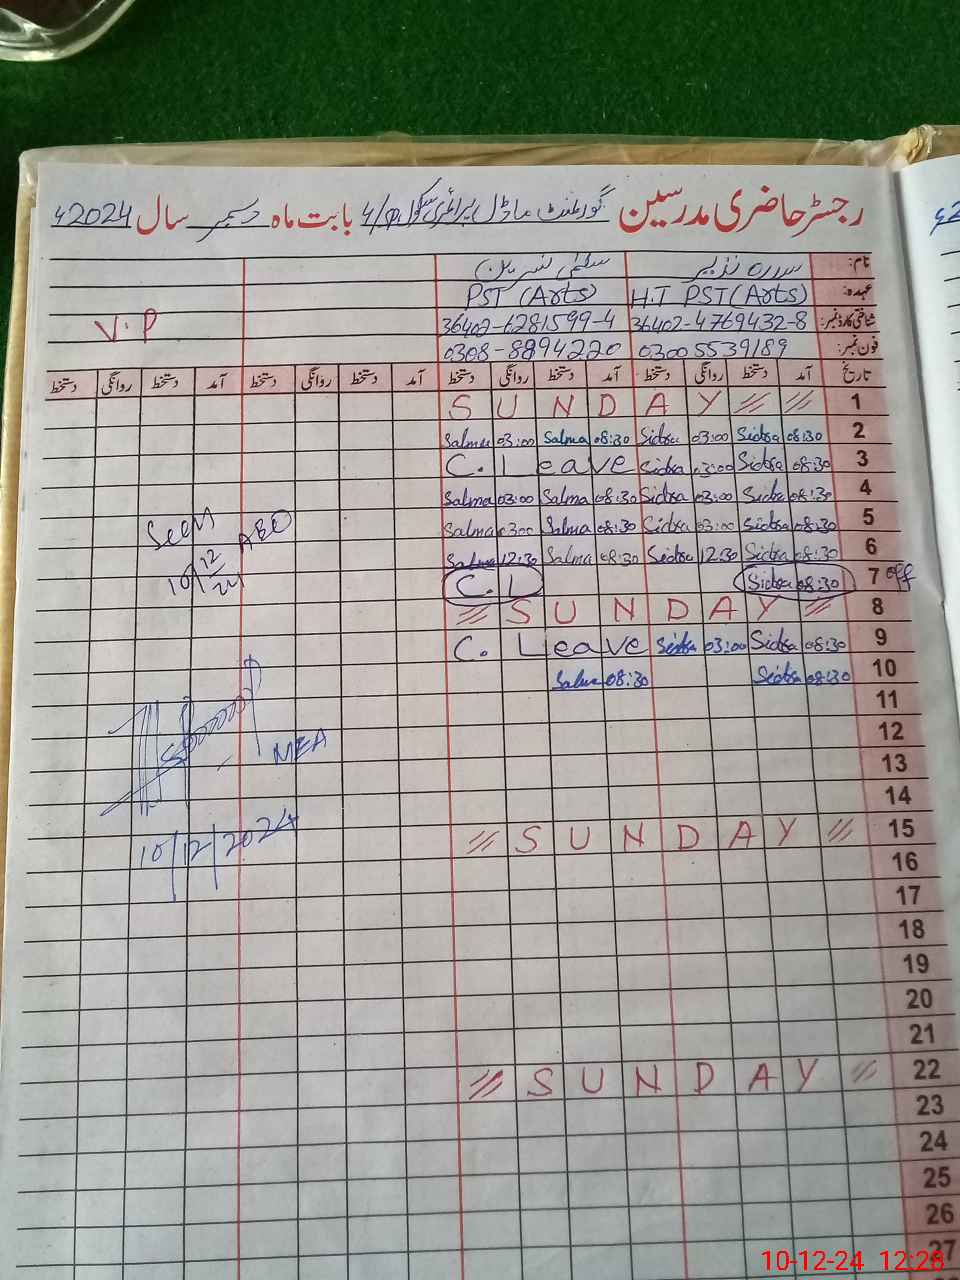 رجسٹر حاضری مدرسین گورنمنٹ ماڈل پرائمری سکول بابت ماہ دسمبر سال 2024ء
نام: سدرہ نذیر سلمیٰ نسرین
عہدہ: H.T PST (Arts) PST (Arts)
شناختی کارڈ نمبر: 36402-4769432-8 36402-6281599-4 V.P
فون نمبر: 03005539189 0308-8894220
تاریخ آمد دستخط روانگی دستخط آمد دستخط روانگی دستخط آمد دستخط روانگی دستخط آمد دستخط روانگی دستخط
S U N D A Y 1
Salma 03:00 Salma 08:30 Sidra 03:00 Sidra 08:30 2
C. Leave Sidra 03:00 Sidra 08:30 3
Salma 03:00 Salma 08:30 Sidra 03:00 Sidra 08:30 4
Salma 0300 Salma 08:30 Sidra 03:00 Sidra 08:30 5
Salma 12:30 Salma 08:30 Sidra 12:30 Sidra 08:30 6
C. L Sidra 08:30 7 off
S U N D A Y 8
C. Leave Sidra 03:00 Sidra 08:30 9
Salma 08:30 Sidra 08:30 10
11
12
13
14
S U N D A Y 15
16
17
18
19
20
21
S U N D A Y 22
23
24
25
26
27
Seen
AEO
10/12/24
MEA
10/12/2024
10-12-24 12:28